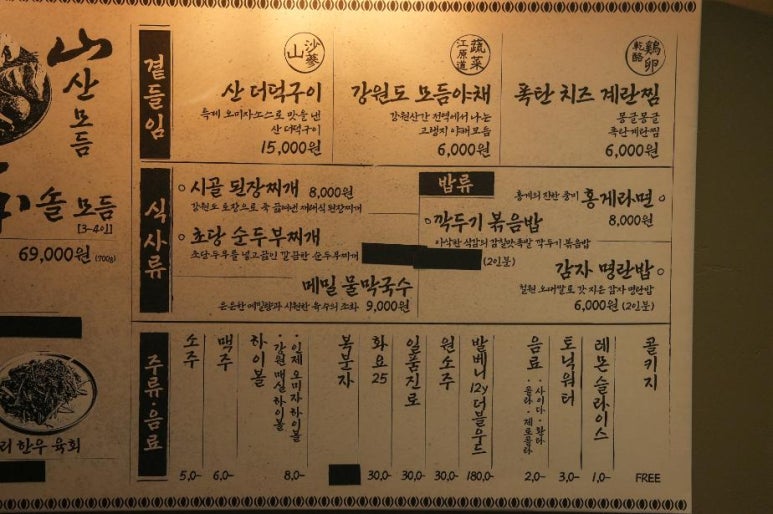 山
산 모듬
솔 모듬
[3-4인]
69,000원 (700g)
리 한우 육회
곁들임
山 沙蔘
산 더덕구이
특제 오미자소스로 맛을 낸
산 더덕구이
15,000원
江原道 蔬菜
강원도 모듬야채
강원산간 전역에서 나는
고랭지 야채모음
6,000원
乾酪 鷄卵
폭탄 치즈 계란찜
몽글몽글
폭탄계란찜
6,000원
식사류
시골 된장찌개 8,000원
강원도 토장으로 푹 끓여낸 재래식 된장찌개
초당 순두부찌개
초당두부를 넣고 끓인 깔끔한 순두부찌개
메밀 물막국수
은은한 메밀향과 시원한 육수의 조화 9,000원
밥류
홍게의 진한 풍미 홍게라면
8,000원
깍두기 볶음밥
아삭한 식감의 감칠맛폭발 깍두기 볶음밥
(2인분)
감자 명란밥
철원 오대쌀로 갓 지은 감자 명란밥
6,000원 (2인분)
주류·음료
소주 5,0-
맥주 6,0-
하이볼
·인제 오미자 하이볼
·강원 매실 하이볼
8,0-
복분자
화요25 30,0-
일품진로 30,0-
원소주 30,0-
발베니 12y 더블우드 180,0-
음료
·사이다 ·환타
·콜라 ·제로콜라
2,0-
토닉워터 3,0-
레몬 슬라이스 1,0-
콜키지 FREE